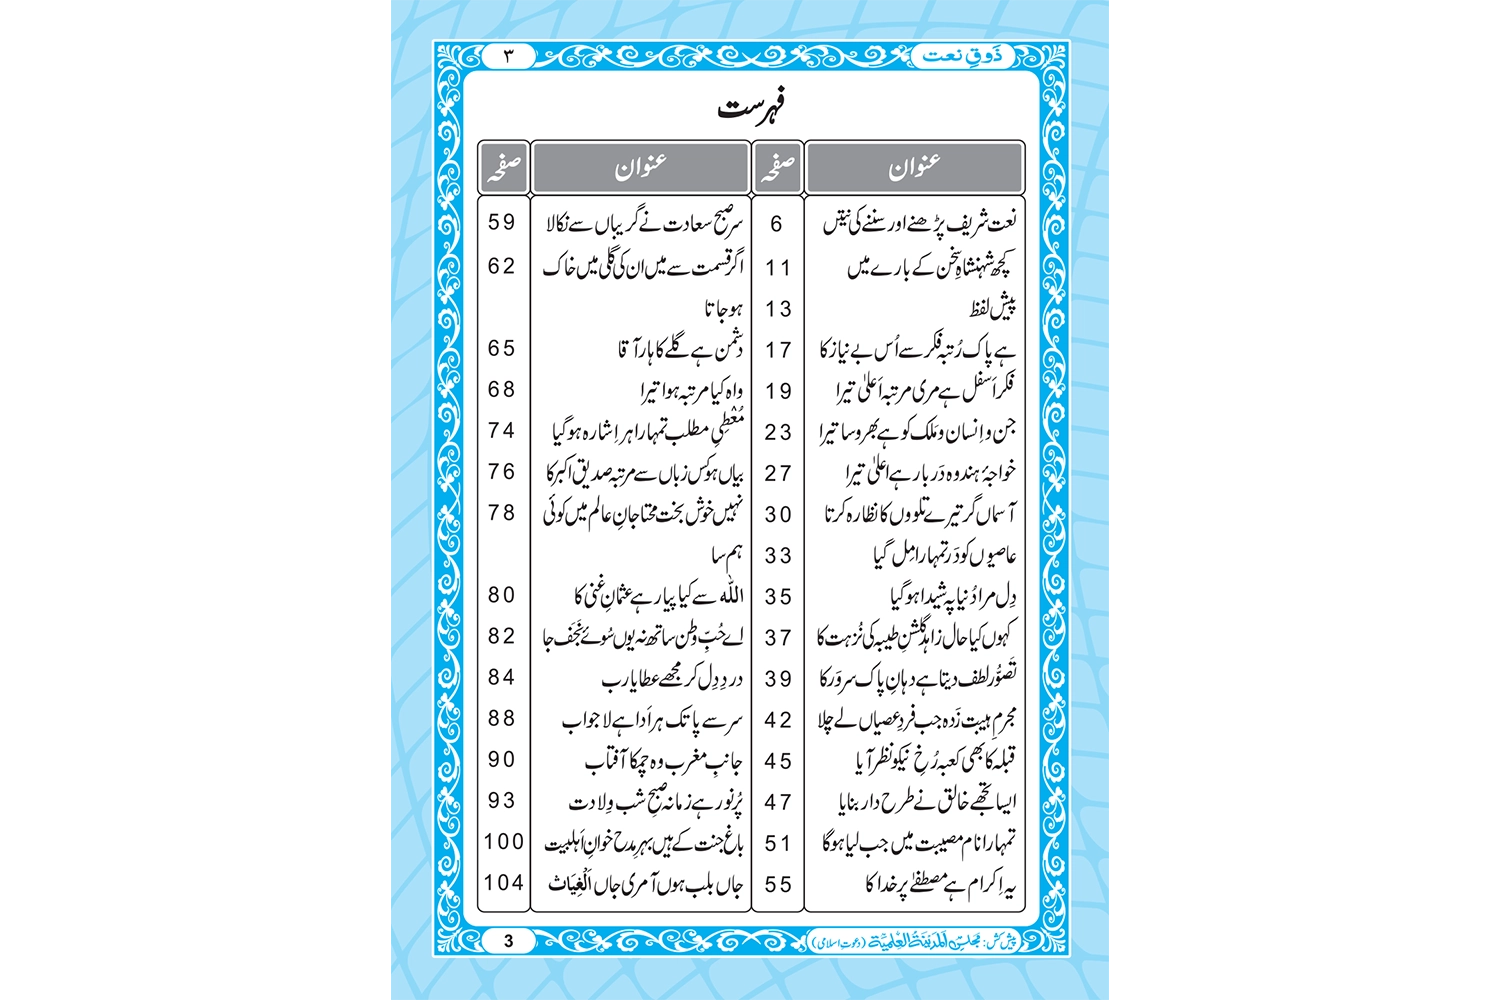 ذَوقِ نعت ۳
فہرست
عنوان صفحہ عنوان صفحہ
نعت شریف پڑھنے اور سننے کی نیتیں 6 سرِ صبحِ سعادت نے گریباں سے نکالا 59
کچھ شہنشاہِ سخن کے بارے میں 11 اگر قسمت سے میں ان کی گلی میں خاک 62
پیش لفظ 13 ہو جاتا
ہے پاک رُتبہ فکر سے اُس بے نیاز کا 17 دشمن ہے گلے کا ہار آقا 65
فکر اَسفل ہے مری مرتبہ اَعلیٰ تیرا 19 واہ کیا مرتبہ ہوا تیرا 68
جن و اِنسان و مَلک کو ہے بھروسا تیرا 23 مُعْطِیِ مطلب تمہارا ہر اِشارہ ہو گیا 74
خواجۂ ہند وہ دَربار ہے اعلیٰ تیرا 27 بیاں ہو کس زباں سے مرتبہ صدیق اکبر کا 76
آسماں گر تیرے تلووں کا نظارہ کرتا 30 نہیں خوش بخت محتاجانِ عالم میں کوئی 78
عاصیوں کو دَر تمہارا مِل گیا 33 ہم سا
دِل مرا دُنیا پہ شیدا ہو گیا 35 اللہ سے کیا پیار ہے عثمانِ غنی کا 80
کہوں کیا حال زاہد گلشنِ طیبہ کی نُزہت کا 37 اے حُبِّ وطن ساتھ نہ یوں سُوئے نَجَف جا 82
تَصَوُّر لطف دیتا ہے دہانِ پاک سرور کا 39 دردِ دِل کر مجھے عطا یا رب 84
مجرمِ ہیبت زَدہ جب فردِ عصیاں لے چلا 42 سر سے پا تک ہر اَدا ہے لاجواب 88
قبلہ کا بھی کعبہ رُخِ نیکو نظر آیا 45 جانبِ مغرب وہ چمکا آفتاب 90
ایسا تجھے خالق نے طرح دار بنایا 47 پُر نور ہے زمانہ صبحِ شبِ وِلادت 93
تمہارا نام مصیبت میں جب لیا ہو گا 51 باغِ جنت کے ہیں بہرِ مدح خوانِ اَہلبیت 100
یہ اِکرام ہے مصطفٰے پر خدا کا 55 جاں بلب ہوں آ مری جاں اَلْغِیَاث 104
پیش کش: مجلس اَلْمَدِیْنَۃُ الْعِلْمِیَّۃ (دعوتِ اسلامی) 3